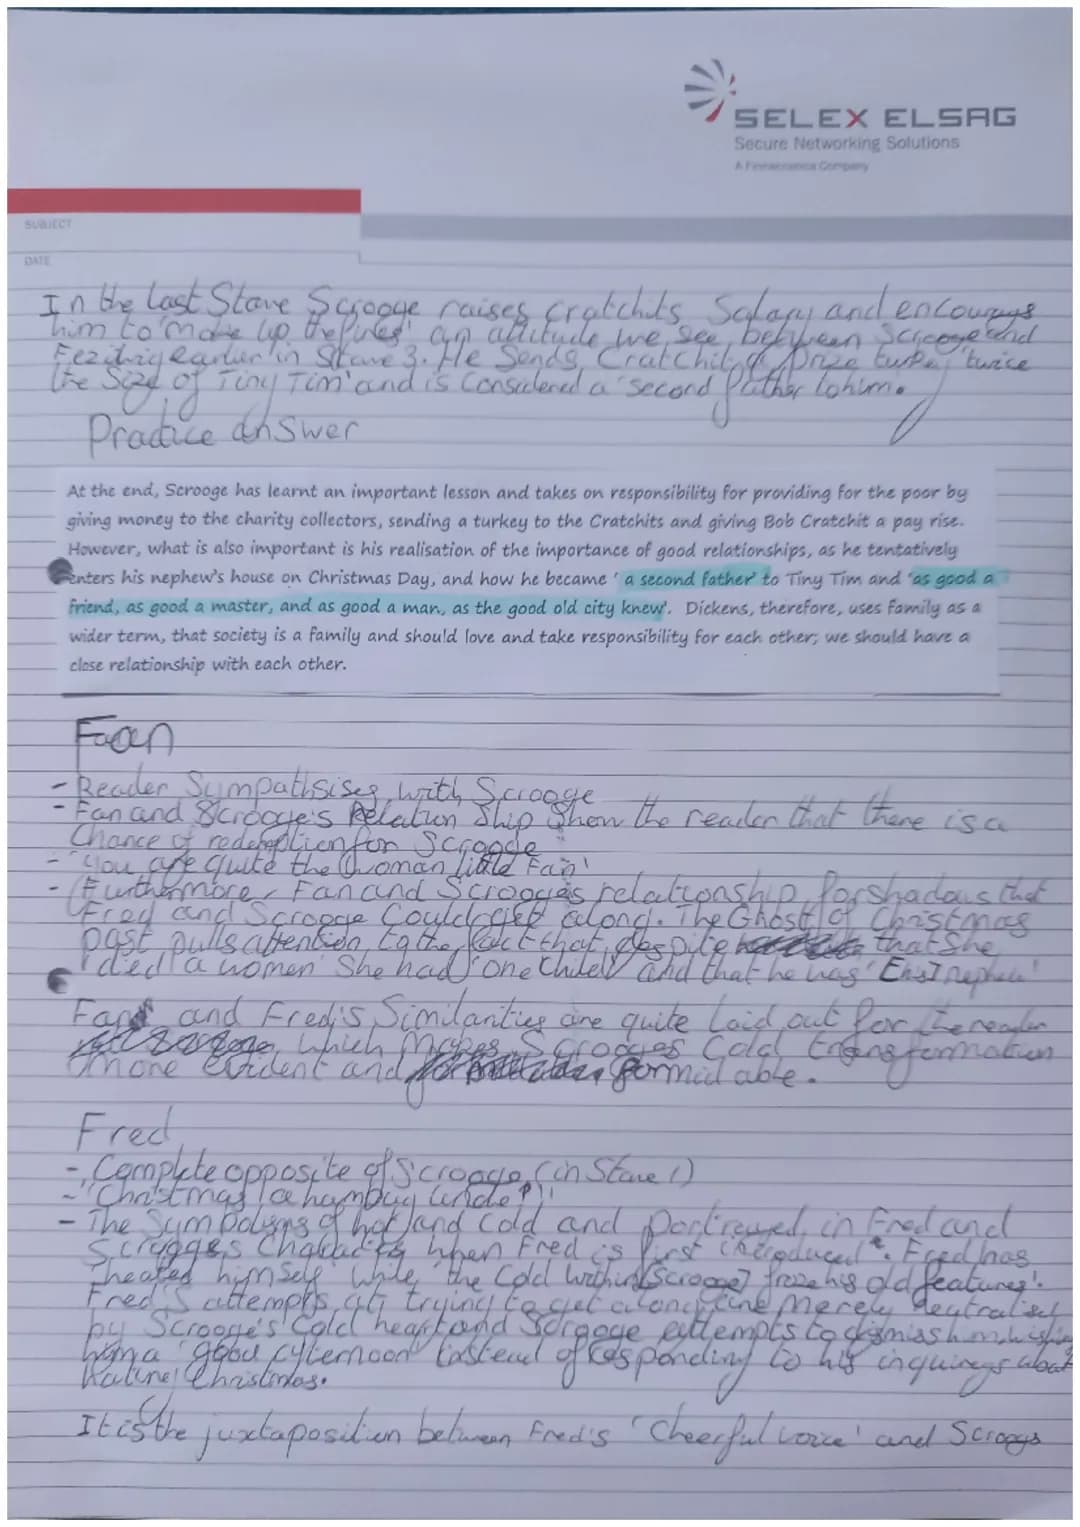 SELEX ELSAG
Secure Networking Solutions
A Finmeccanica Company
SUBJECT
DATE
In the last Stave Scrooge raises Cratchits Salary and encourages
him to 'make up the fires' an attitude we see between Scrooge and
Fezziwig earlier in Stave 3. He Sends Cratchit a prize turkey 'twice
the Size of Tiny Tim' and is Considered a 'second father to him.
Practice answer
At the end, Scrooge has learnt an important lesson and takes on responsibility for providing for the poor by
giving money to the charity collectors, sending a turkey to the Cratchits and giving Bob Cratchit a pay rise.
However, what is also important is his realisation of the importance of good relationships, as he tentatively
enters his nephew's house on Christmas Day, and how he became ' a second father' to Tiny Tim and 'as good a
friend, as good a master, and as good a man, as the good old city knew'. Dickens, therefore, uses family as a
wider term, that society is a family and should love and take responsibility for each other; we should have a
close relationship with each other.
Fan
- Reader Sympathsises with Scrooge
- Fan and Scrooge's Relation Ship Show the reader that there is a
Chance of redemption for Scrooge
- 'You are quite the woman little Fan'
- Furthermore, Fan and Scrooges relationship forshadows that
Fred and Scrooge Could get along. The Ghost of Christmas
past pulls attention to the fact that despite that She
'died a women' She had 'one Child' and that he was '[his] nephew'
Fans and Fred's Similarities are quite laid out for the reader
which makes Scrooges Cold transformation
more evident and formidable.
Fred
- Complete opposite of Scrooge (in Stave 1)
- 'Christmas a humbug uncle!'
- The Symbolysms of hot and Cold and portrayed in Fred and
Scrooges Character when Fred is first introduced. Fred has
'heated himself' while 'the Cold within [Scrooge] froze his old features'.
Fred's attempts at trying to get along are merely neutralised
by Scrooge's Cold heart and Scrooge attempts to dismiss him wishing
him a 'good afternoon' instead of responding to his inquireys about
Christmas.
It is the juxtaposition between Fred's 'Cheerful voice' and Scroogs